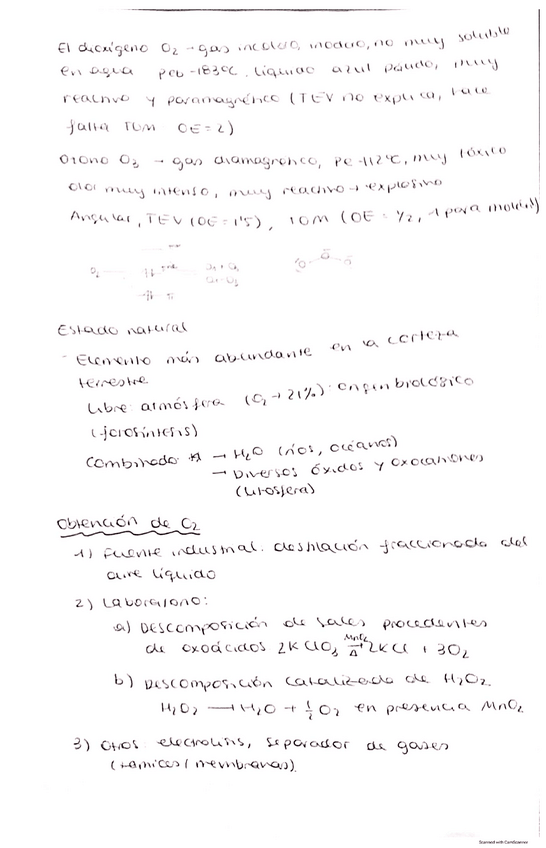 El dioxígeno O2 → gas incoloro, inodoro, no muy soluble
en agua peb -183ºC, líquido azul pálido, muy
reactivo y paramagnético (TEV no explica, hace
falta TOM OE=2)
Ozono O3 → gas diamagnético, pe -112ºC, muy tóxico
olor muy intenso, muy reactivo → explosivo
Angular, TEV (OE = 1'5), TOM (OE = 1/2, 1 para
Estado natural
- Elemento más abundante en la corteza
terrestre
Libre: atmósfera (O2 → 21%): origen biológico
(fotosíntesis)
Combinado → H2O (ríos, océanos)
→ Diversos óxidos y oxoaniones
(litosfera)
Obtención de O2
1) Fuente industrial: destilación fraccionada del
aire líquido
2) Laboratorio:
a) Descomposición de sales procedentes
de oxoácidos 2KClO3 →Δ 2KCl + 3O2
b) Descomposición catalizada de H2O2.
H2O2 → H2O + 1/2 O2 en presencia MnO2
3) Otros: electrólisis, separador de gases
(tamices/membranas).
Scanned with CamScanner